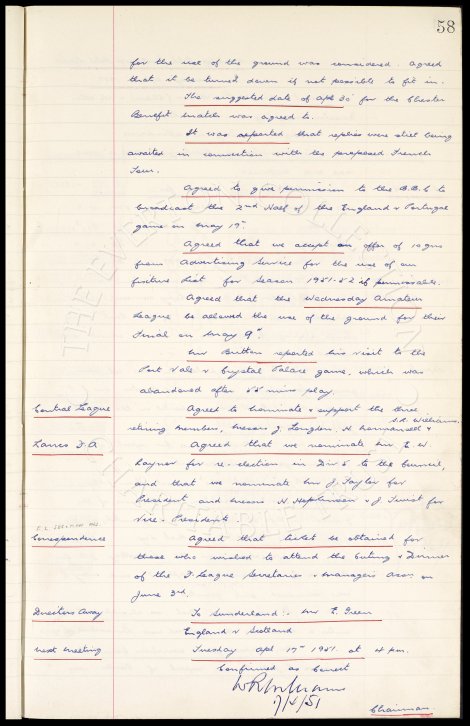 58
for the use of the ground was considered. Agreed
that it be turned down if not possible to fit in.
The suggested date of Apl 30th for the Chester
Benefit match was agreed to.
It was reported that replies were still being
awaited in connection with the proposed French
Tour.
Agreed to give permission to the B.B.C to
broadcast the 2nd Half of the England v Portugal
game on May 19th
Agreed that we accept an offer of 10 gns
from Advertising Service for the use of our
fixture list for Season 1951-52 if permissable.
Agreed that the Wednesday Amateur
League be allowed the use of the ground for their
Final on May 9th
Mr Button reported his visit to the
Port Vale v Crystal Palace game, which was
abandoned after 55 mins play.
Central League Agreed to nominate & support the three
retiring members, Messrs J. Longden, H. &
S.R. Williams.
Lancs F.A Agreed that we nominate Mr E. W.
Layner for re-election in Div 5 to the Council,
and that we nominate Mr J. Taylor for
President and Messrs H. Hopkinson & J. Twist for
Vice-Presidents.
Correspondence Agreed that ticket be obtained for
those who wished to attend the Outing & Dinner
of the F. League Secretaries & Managers Assn. on
June 3rd.
Directors Away To Sunderland:- Mr E. Green
England v Scotland
Next Meeting Tuesday Apl 17th 1951. at 4 pm.
Confirmed as Correct
W R Williams
17/4/51
Chairman.